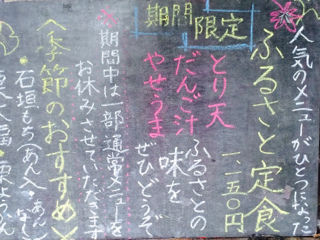 期間限定
人気のメニューがひとつになった
ふるさと定食
一、一五〇円
とり天
だんご汁
やせうま
ふるさとの
味を
ぜひどうぞ
※期間中は一部通常メニューを
お休みさせていただきます
〈季節のおすすめ〉
・石垣もち(あん)
・あんなし